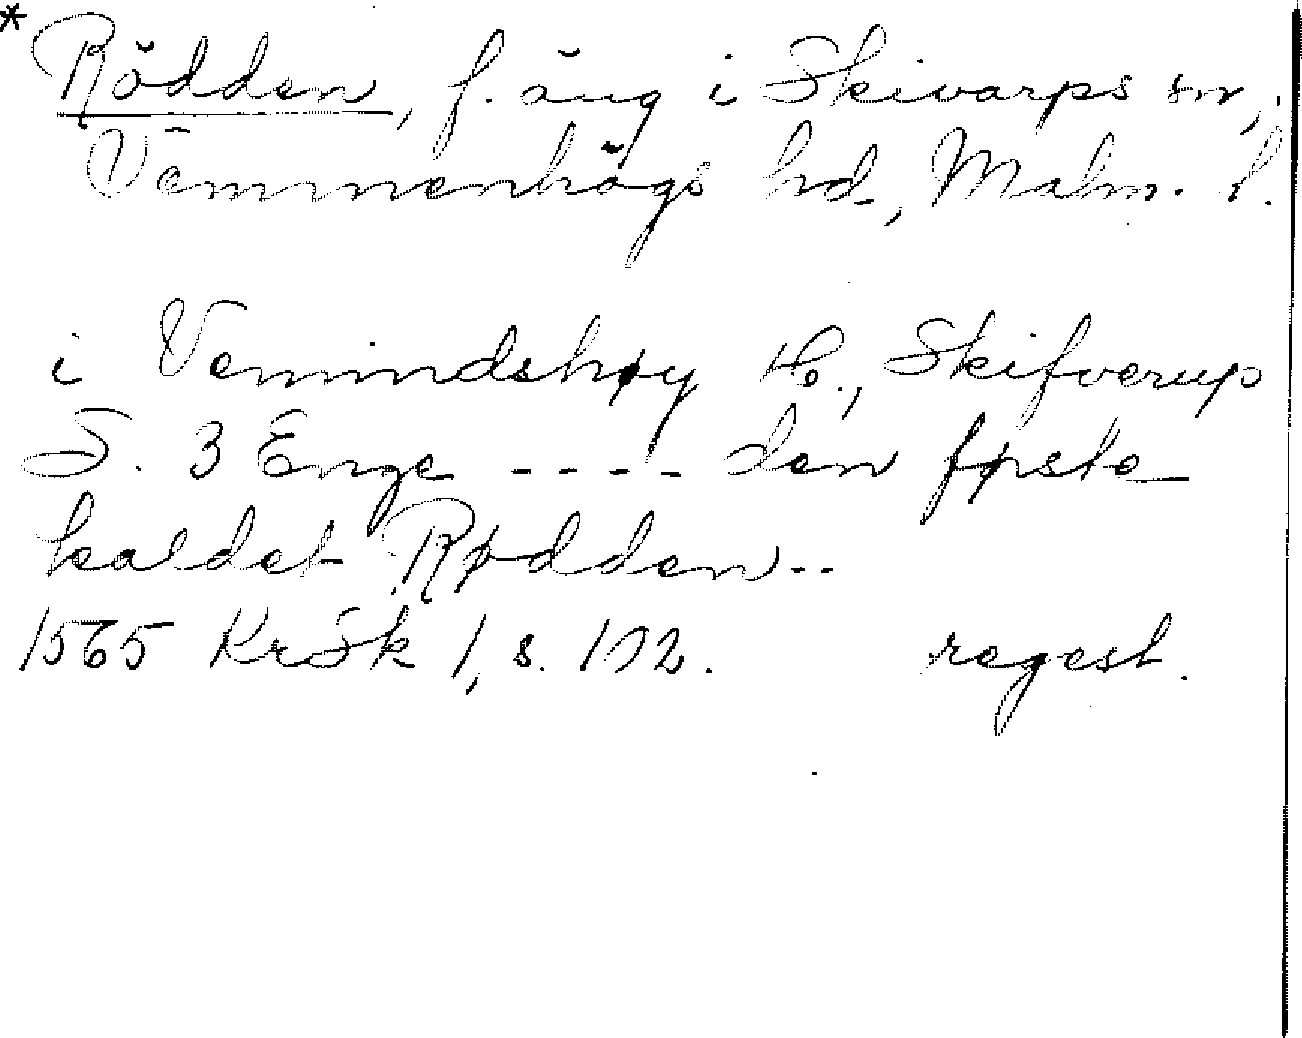 *
Rödden, f. äng i Skivarps sn,
Vemmenhögs hd, Malm. l.
i Vemmindshøy H., Skifverup
S. 3 Enge ---- den første
kaldet Rødden..
1565 KrSk 1, s. 102. regest.